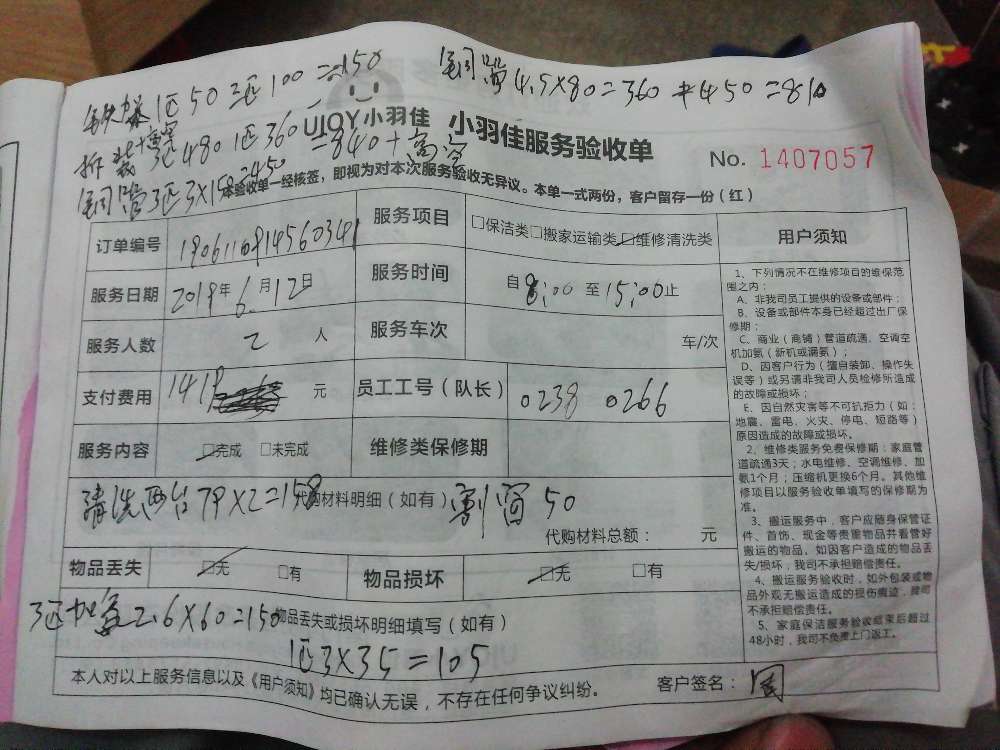 1匹50 3匹100=150
铜管4.5×80=360+450=810
UJOY小羽佳 小羽佳服务验收单
拆装 3匹480 1匹360=840+高空
No. 1407057
铜管3匹3×150=450
本验收单一经核签，即视为对本次服务验收无异议。本单一式两份，客户留存一份（红）
订单编号
服务项目 □保洁类□搬家运输类□维修清洗类
用户须知
服务日期 2019年6月12日
服务时间 自8:00至15:00止
服务人数 2 人
服务车次 车/次
支付费用 元
员工工号（队长） 0238 0266
服务内容 □完成 □未完成
维修类保修期
清洗两台79×2=158
代购材料明细（如有）
50
代购材料总额： 元
物品丢失 □无 □有
物品损坏 □无 □有
3匹加氨2.6×60=150
物品丢失或损坏明细填写（如有）
1匹3×35=105
本人对以上服务信息以及《用户须知》均已确认无误，不存在任何争议纠纷。
客户签名：
1、下列情况不在维修项目的维保范
围之内：
A、非我司员工提供的设备或部件；
B、设备或部件本身已经超过出厂保
修期；
C、商业（商铺）管道疏通、空调空
机加氨（新机或漏氨）；
D、因客户行为（擅自装卸、操作失
误等）或另请非我司人员检修所造成
的故障或损坏；
E、因自然灾害等不可抗拒力（如：
地震、雷电、火灾、停电、短路等）
原因造成的故障或损坏。
2、维修类服务免费保修期：家庭管
道疏通3天；水电维修、空调维修、加
氨1个月；压缩机更换6个月。其他维
修项目以服务验收单填写的保修期为
准。
3、搬运服务中，客户应随身保管证
件、首饰、现金等贵重物品并看管好
搬运的物品。如因客户造成的物品丢
失/损坏，我司不承担赔偿责任。
4、搬运服务验收时，如外包装或物
品外观无搬运造成的损伤痕迹，我司
不承担赔偿责任。
5、家庭保洁服务验收结束后超过
48小时，我司不免费上门返工。